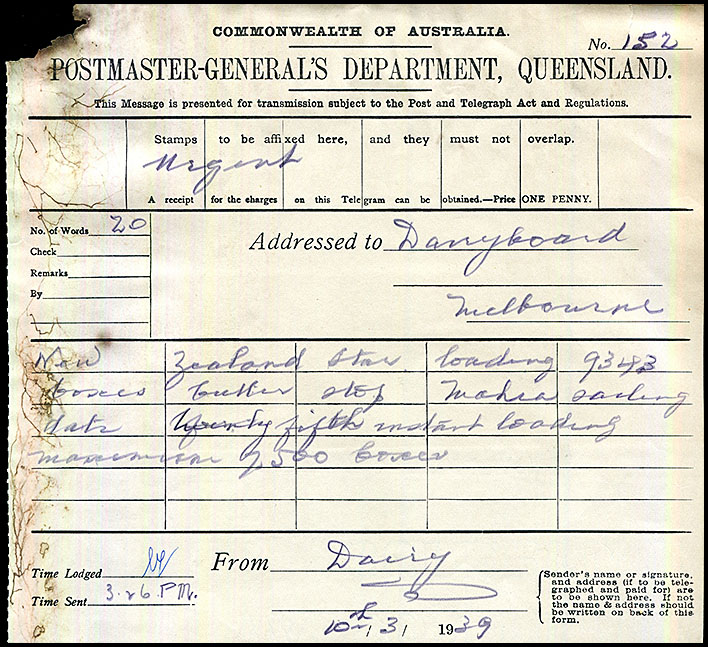 COMMONWEALTH OF AUSTRALIA.
No. 152
POSTMASTER-GENERAL'S DEPARTMENT, QUEENSLAND.
This Message is presented for transmission subject to the Post and Telegraph Act and Regulations.
Stamps to be affixed here, and they must not overlap.
Urgent
A receipt for the charges on this Telegram can be obtained.—Price ONE PENNY.
No. of Words 20
Check
Remarks
By
Addressed to Dairyboard
Melbourne
New Zealand Star loading 9343
boxes butter stop sailing
date twenty fifth instant loading
maximum 7500 boxes
Time Lodged
Time Sent 3.26 P.M.
From Dairy
10th/3/1939
Sender's name or signature, and address (if to be telegraphed and paid for) are to be shown here. If not the name & address should be written on back of this form.